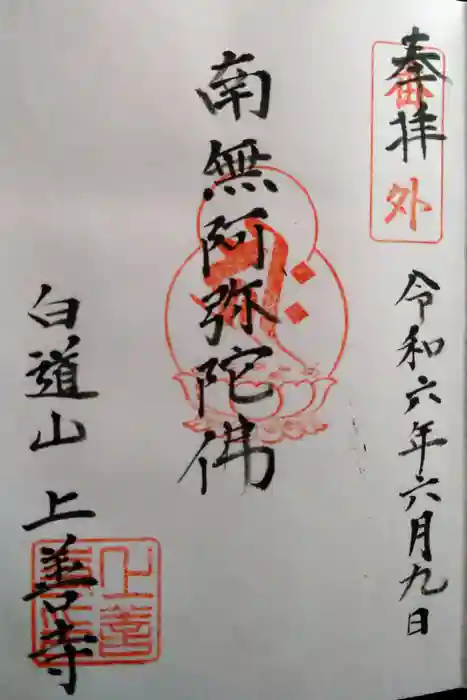 奉拝
番外
令和六年六月九日
南無阿弥陀佛
白道山 上善寺
上善寺